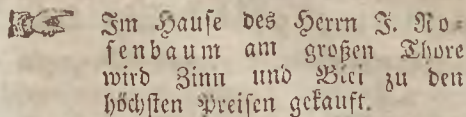 Im Hause des Herrn J. Ro⸗
senbaum am großen Thore
wird Zinn und Blei zu den
höchsten Preisen gekauft.